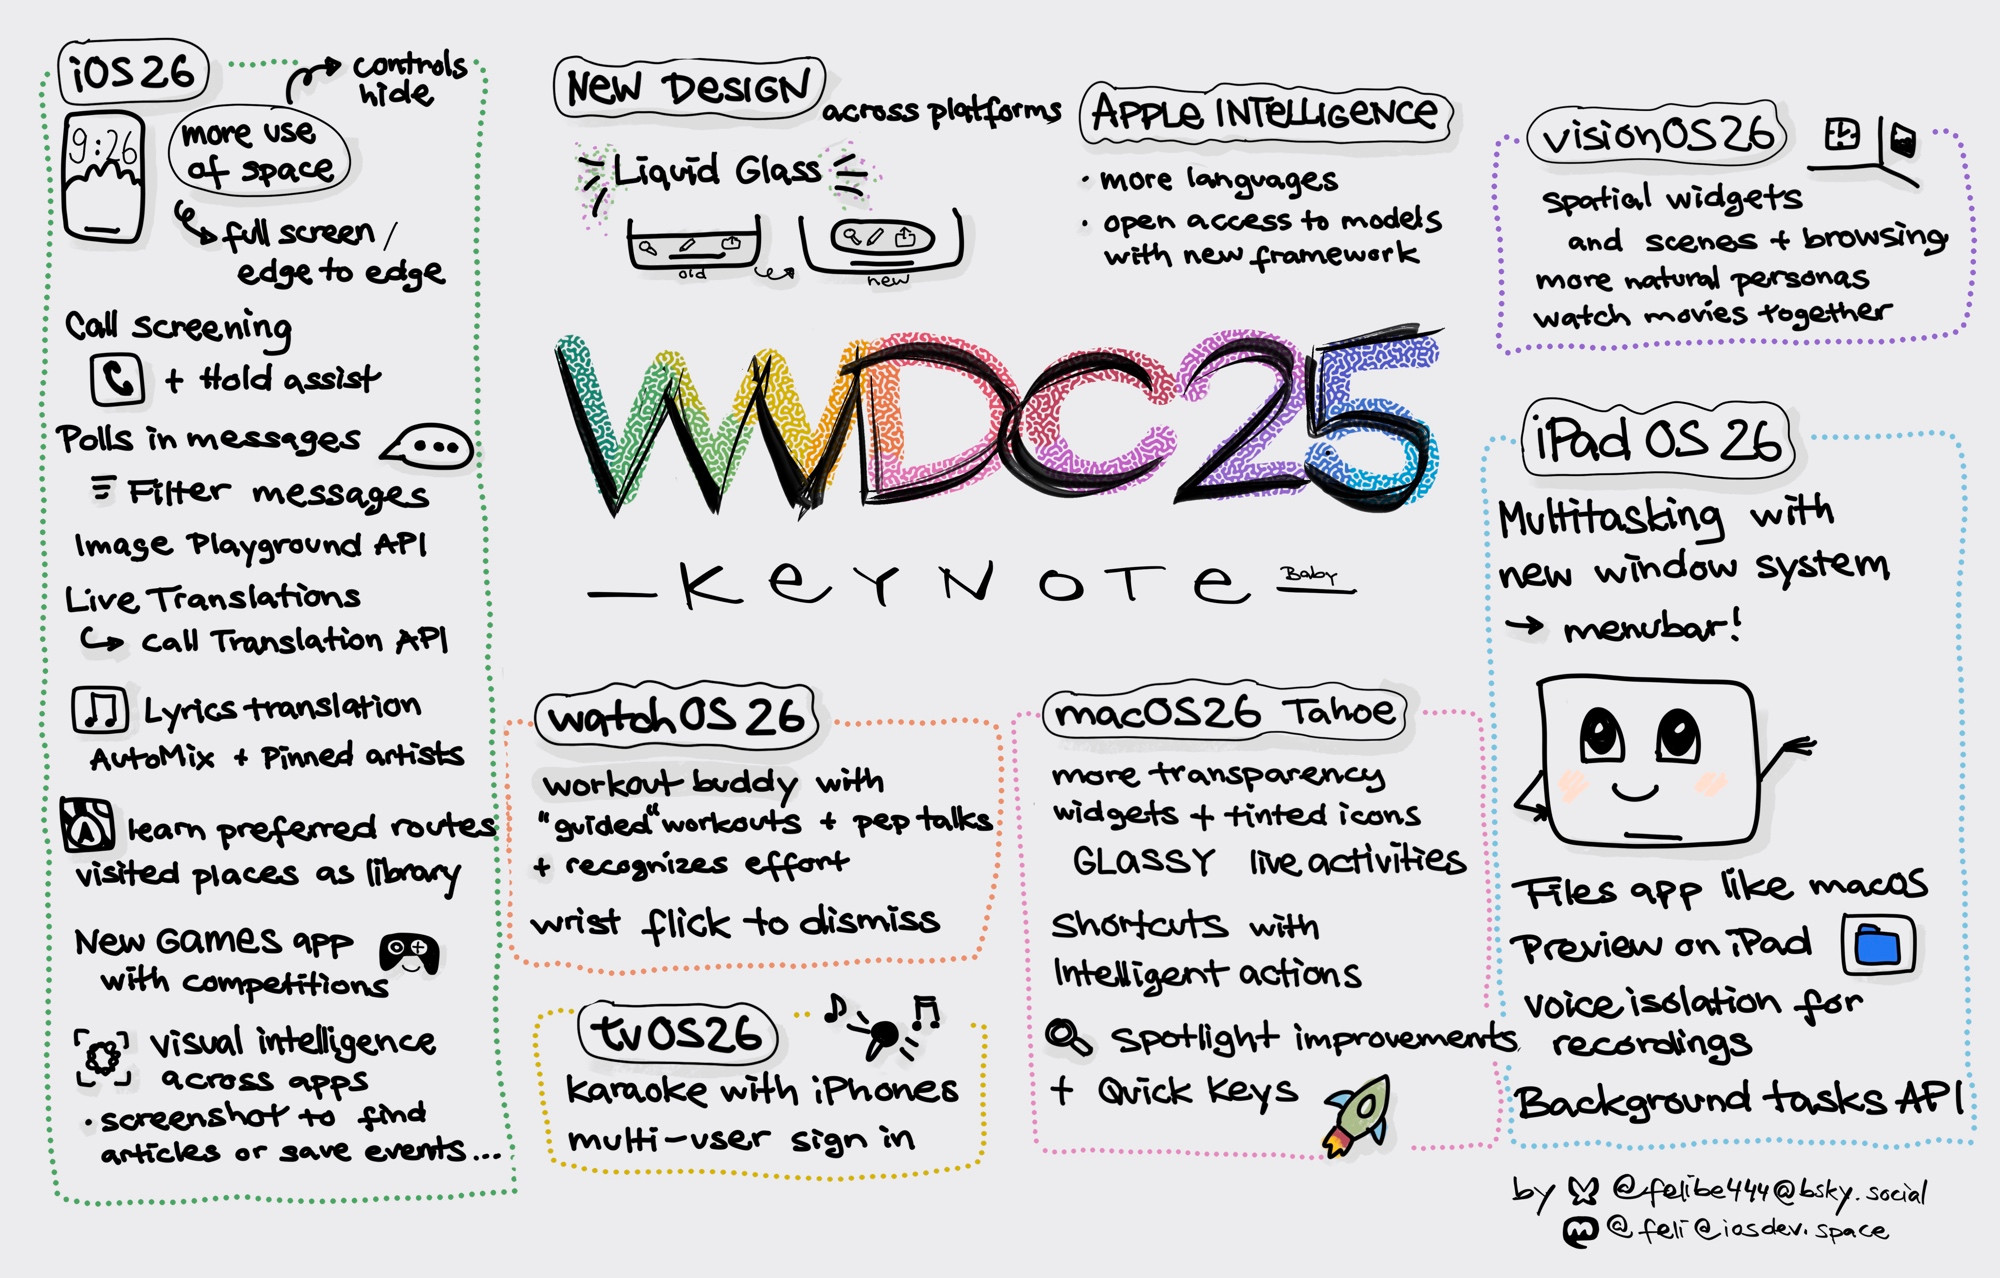 iOS 26
controls
hide
9:26
more use
of space
full screen /
edge to edge
Call screening
+ Hold assist
Polls in messages
Filter messages
Image Playground API
Live Translations
call Translation API
Lyrics translation
AutoMix + Pinned artists
learn preferred routes
visited places as library
New GAMES app
with competitions
visual intelligence
across apps
• screenshot to find
articles or save events...
NEW DESIGN
across platforms
Liquid Glass
old
new
APPLE INTELLIGENCE
• more languages
• open access to models
with new framework
WWDC25
— KEYNOTE —
Baby
watchOS 26
workout buddy with
"guided" workouts + pep talks
+ recognizes effort
wrist flick to dismiss
tvOS26
karaoke with iPhones
multi-user sign in
macOS26 Tahoe
more transparency
widgets + tinted icons
GLASSY live activities
Shortcuts with
Intelligent actions
Spotlight improvements
+ Quick Keys
visionOS 26
spatial widgets
and scenes + browsing
more natural personas
watch movies together
iPad OS 26
Multitasking with
new window system
→ menubar!
Files app like macOS
Preview on iPad
voice isolation for
recordings
Background tasks API
by @felibe444@bsky.social
@feli@iosdev.space